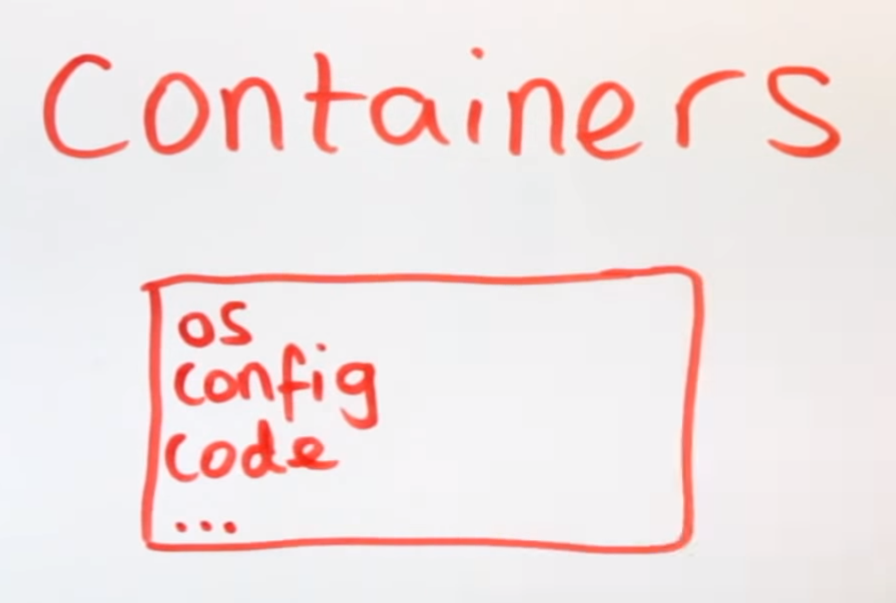 Containers
os
config
code
...